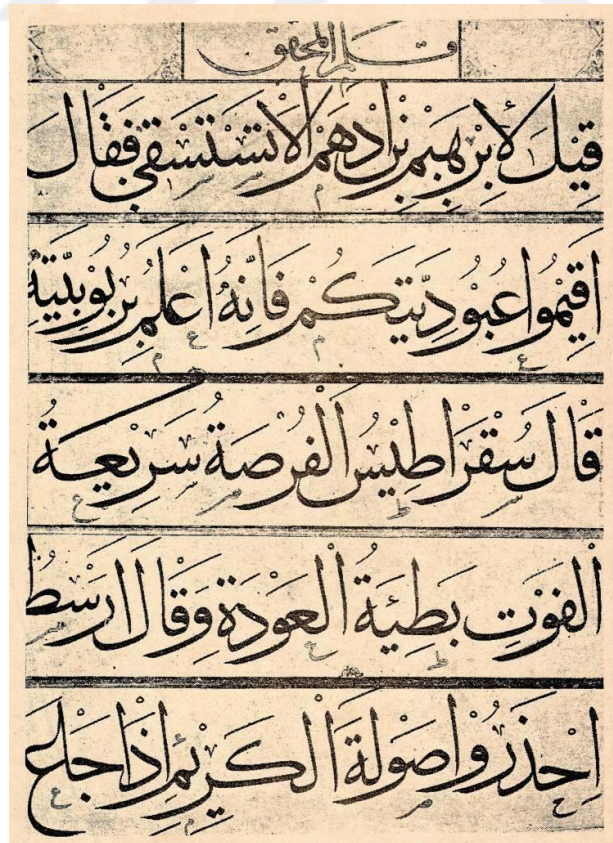 قلم المحقق
قِيْلَ لِأَبْرٰهِيْمَ بْنِ اَدْهَمْ اَلَا تَسْتَسْقِيْ فَقَالَ
اَقِيْمُوا عُبُوْدِيَّتَكُمْ فَاِنَّهُ اَعْلَمُ بِرُبُوْبِيَّتِهِ
قَالَ سُقْرَاطِيْسُ اَلْفُرْصَةُ سَرِيْعَةُ
اَلْفَوْتِ بَطِيْئَةُ الْعَوْدَةِ وَقَالَ اَرَسْطُ
اِحْذَرُوا صَوْلَةَ الْكَرِيْمِ اِذَا جَاعَ